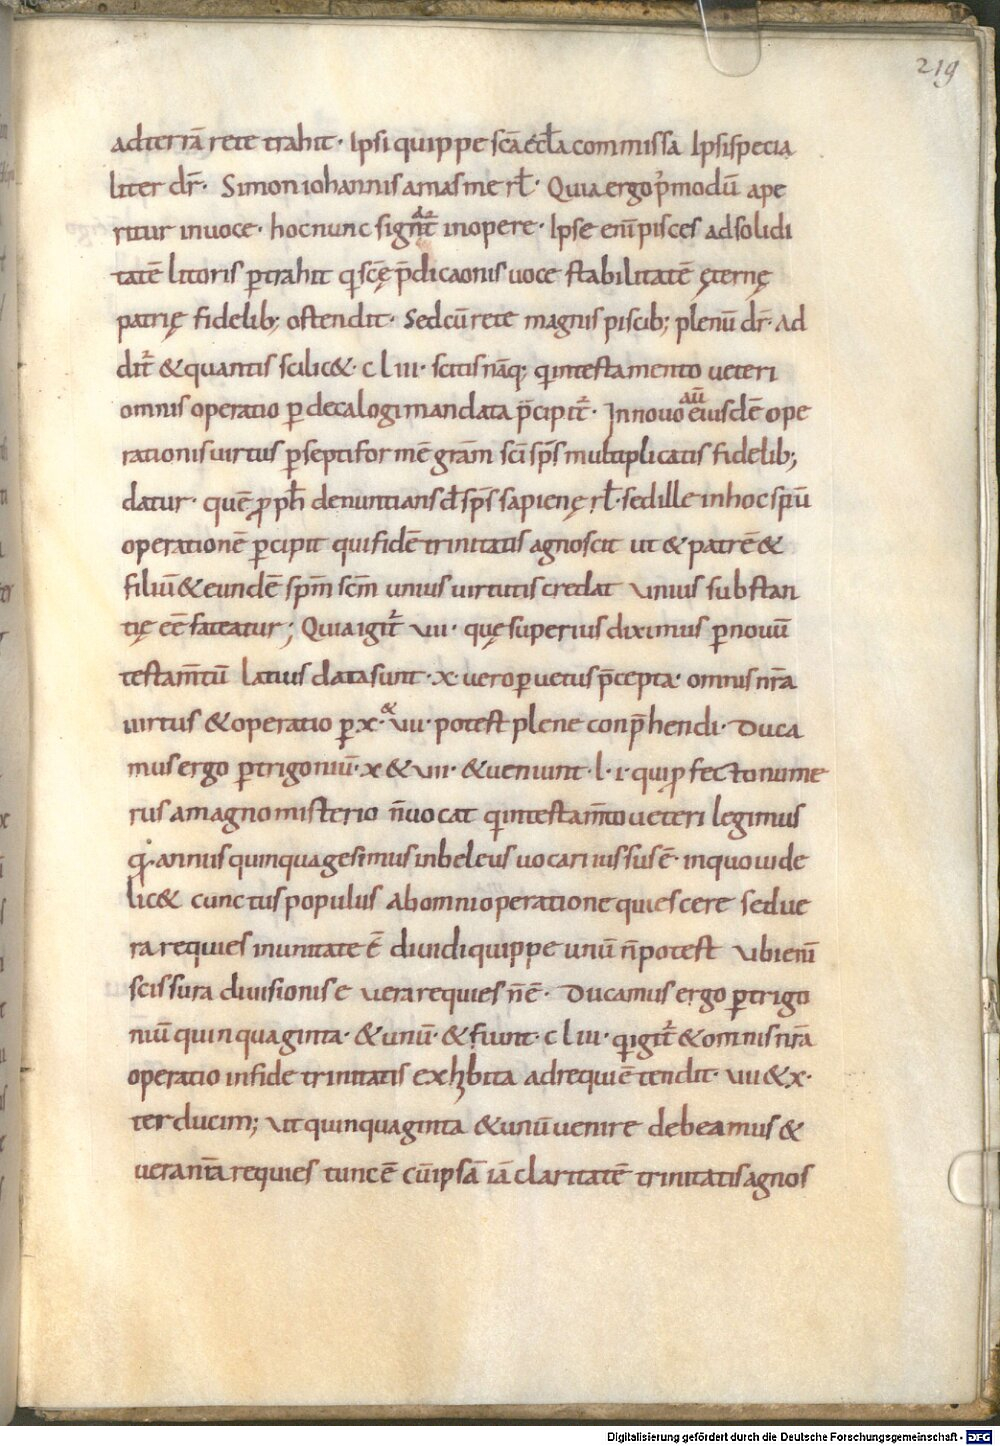 219
adterrā rete trahit· Ipsi quippe scā eccła commissa Ipsi specia
liter dr̄· Simon iohannis amas me rł· Quia ergo p̄modū ape
ritur inuoce· hoc nunc signat̄ inopere· Ipse enī pisces adsolidi
tatē littoris ptrahit q scę p̄dicaonis uoce stabilitatē ęternę
patrię fidelib; ostendit· Sed cū rete magnis piscib; plenū dr̄· Ad
dit̄ & quantis scilic&· c l iii· scitis nāq; q intestamento ueteri
omnis operatio p decalogi mandata p̄cipit̄· In nouo aū eiusdē ope
rationis uirtus p septiformē grām scī sp̄s multiplicatis fidelib;
datur· quē pph̄ denuntians d̄ sp̄s sapienę rł· sed ille inhoc spū
operationē pcipit qui fidē trinitatis agnoscit ut & patrē &
filiū & eundē spm̄ scm̄ unius uirtutis credat unius substan
tię eē fateatur; Quia igit̄ uii· quę superius diximus p nouū
testam̄tū latius data sunt· x· uero p uetus p̄cepta· omnis nr̄a
uirtus & operatio p x· & uii· potest plene conp̄hendi· Duca
mus ergo p trigoniū· x & uii· & ueniunt· l· i· qui pfecto nume
rus amagno misterio n̄ uocat q intestam̄to ueteri legimus
q· annus quinquagesimus inbeleus uocari iussus ē· inquo uide
lic& cunctus populus ab omni operatione quiescere sed ue
ra requies inunitate ē diuidi quippe unū n̄ potest ubi enī
scissura diuisionis e uera requies n̄ ē· Ducamus ergo p trigo
niū quinquaginta· & unū· & fiunt· c l iii· q igit̄ & omnis nr̄a
operatio infide trinitatis exhibita adrequiē tendit· uii & x·
ter ducim; ut quinquaginta & unū uenire debeamus &
uera nr̄a requies tunc ē cū ipsā iā claritatē trinitatis agnos
Digitalisierung gefördert durch die Deutsche Forschungsgemeinschaft - DFG